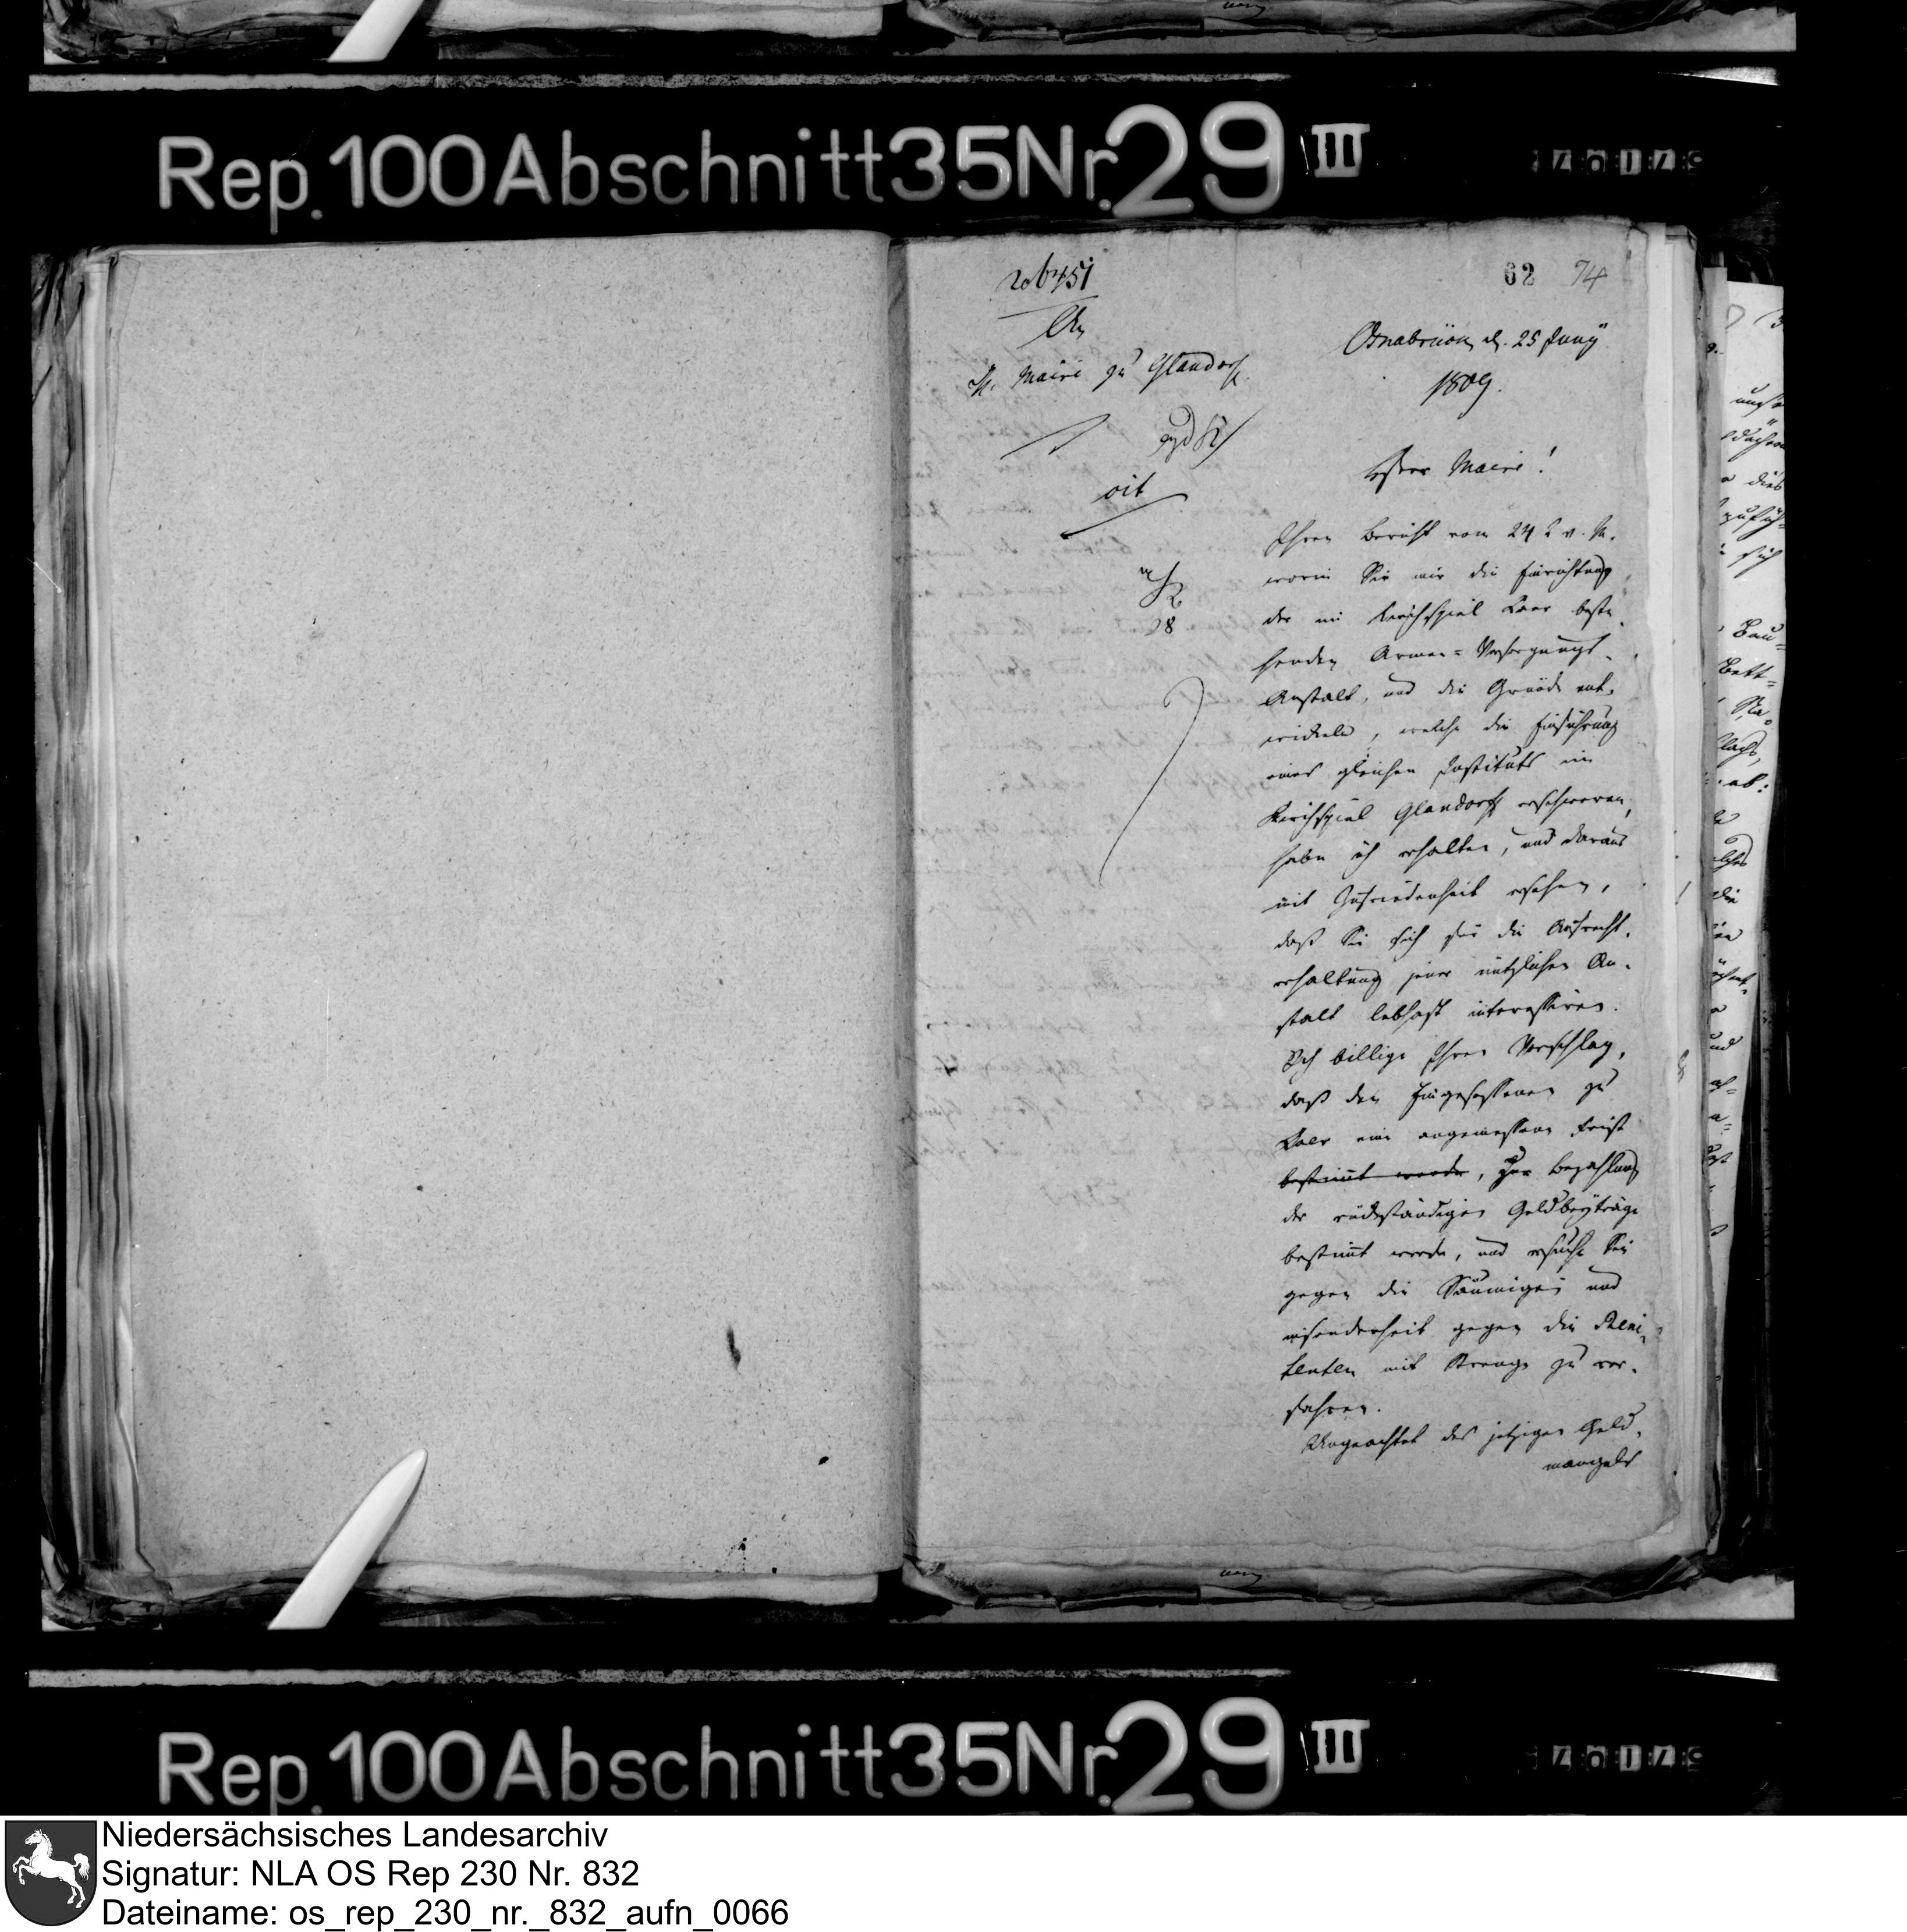 Rep. 100 Abschnitt 35 Nr. 29 III
62 74
An
H. Maire zu Glandorf
cit
28
Osnabrück, d. 25 Juny
1809.
Herr Maire!
Ihren Bericht vom 24 v. M.
worin Sie mir die Einrichtung
der im Kirchspiel Laer beste-
henden Armen-Versorgungs-
Anstalt, und die Gründe ent-
wickeln, welche die Einführung
eines gleichen Instituts im
Kirchspiel Glandorf erschweren,
habe ich erhalten, und daraus
mit Zufriedenheit ersehen,
daß Sie sich für die Aufrecht-
erhaltung jener nützlichen An-
stalt lebhaft interessiren.
Ich billige Ihren Vorschlag,
daß den Eingesessenen zu
Laer eine angemessene Frist
bestimmt werde, zur Bezahlung
der rückständigen Geldbeyträge
bestimmt werde, und ersuche Sie
gegen die Säumigen und
insonderheit gegen die Reni-
tenten mit Strenge zu ver-
fahren.
Ungeachtet des jetzigen Geld-
mangels
Rep. 100 Abschnitt 35 Nr. 29 III
Niedersächsisches Landesarchiv
Signatur: NLA OS Rep 230 Nr. 832
Dateiname: os_rep_230_nr._832_aufn_0066